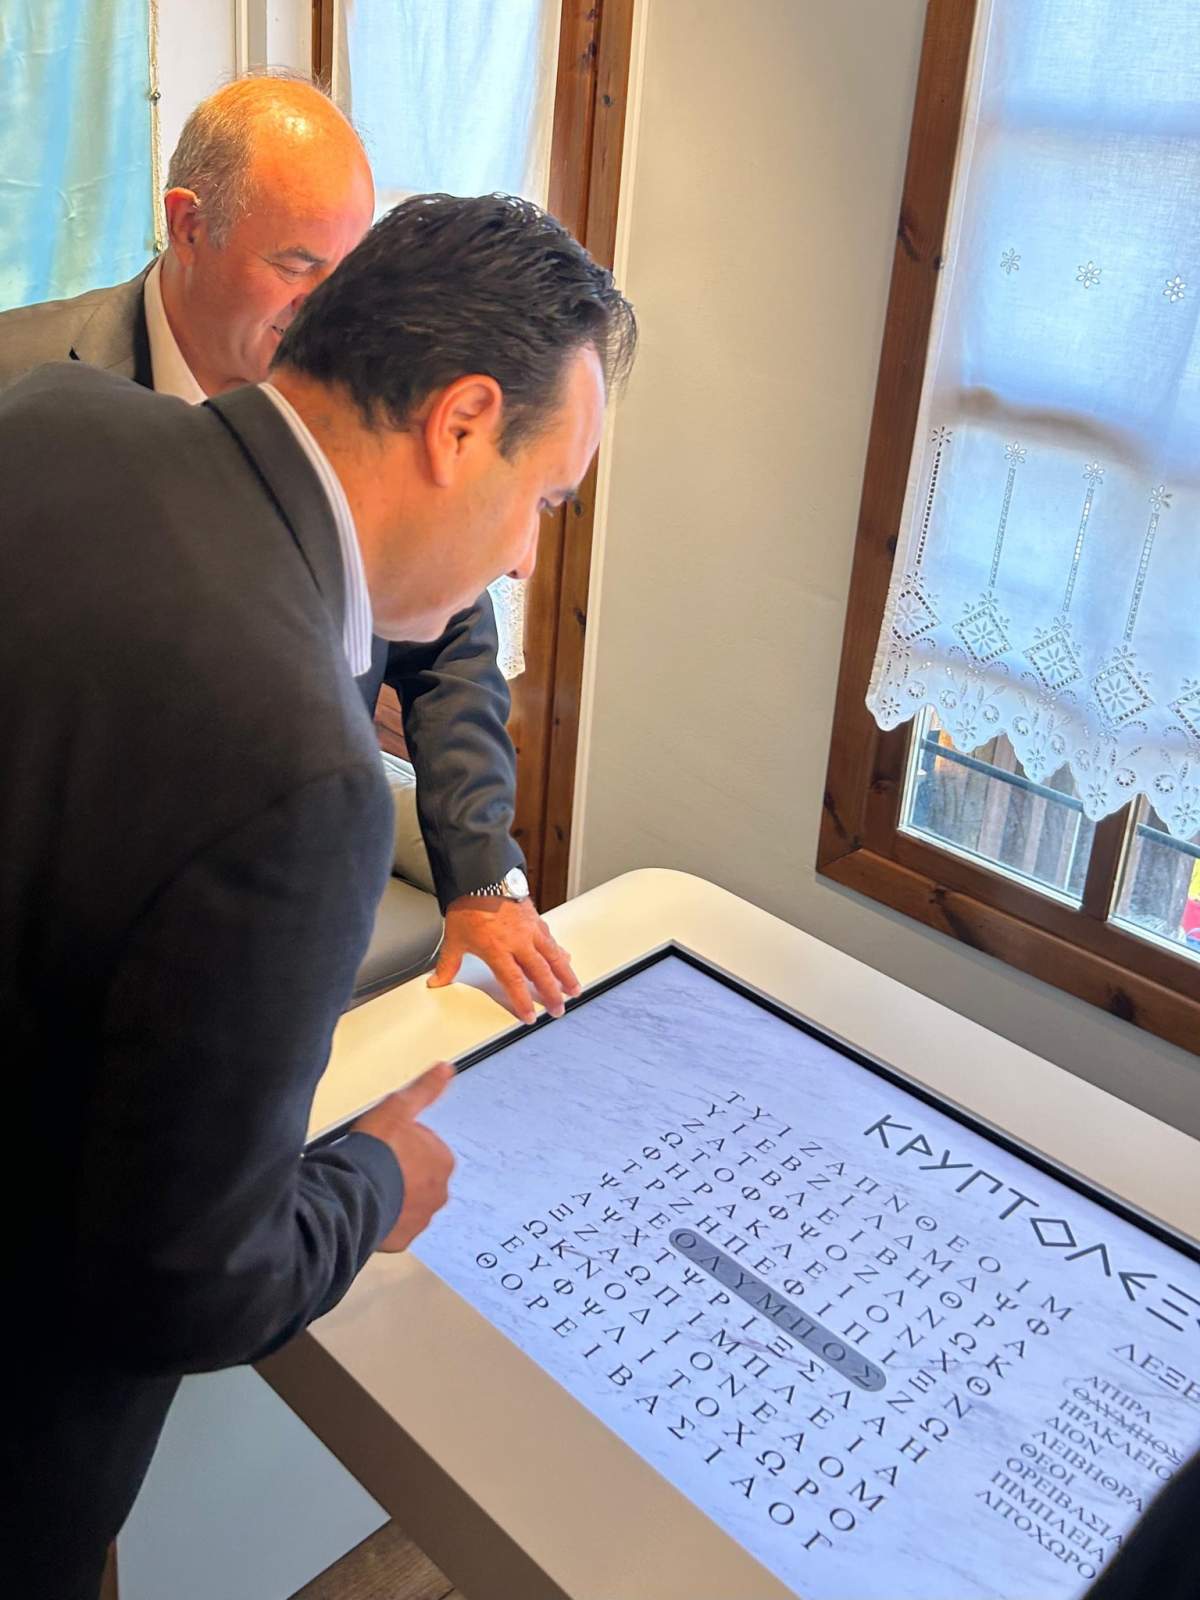 ΚΡΥΠΤΟΛΕΞ
Τ Υ Ι Ζ Α Π Ν Θ Ε Ο Ι Μ
Υ Ι Ε Β Ζ Ι Λ Δ Μ Δ Ψ Φ
Ζ Α Τ Β Λ Ε Ι Β Η Θ Ρ Α
Ω Τ Ο Φ Φ Ψ Ο Ζ Λ Ν Ω Κ
Φ Η Ρ Α Κ Λ Ε Ι Ο Ν Χ Θ
Τ Ρ Ζ Η Π Ε Φ Ι Π Ι Ξ Ν
Ψ Α Ε Ο Λ Υ Μ Π Ο Σ Ζ Ω
Α Ψ Χ Τ Ψ Ρ Ι Ξ Σ Λ Α Η
Ξ Ζ Α Ω Π Ι Μ Π Λ Ε Ι Α
Ω Κ Ν Ο Δ Ι Ο Ν Ε Α Ο Μ
Ε Υ Φ Ψ Λ Ι Τ Ο Χ Ω Ρ Ο
Θ Ο Ρ Ε Ι Β Α Σ Ι Α Ο Γ
ΛΕΞΕ
ΟΛΥΜΠΟΣ
ΗΡΑΚΛΕΙΟ
ΔΙΟΝ
ΛΕΙΒΗΘΡΑ
ΘΕΟΙ
ΟΡΕΙΒΑΣΙΑ
ΠΙΜΠΛΕΙΑ
ΛΙΤΟΧΩΡΟ